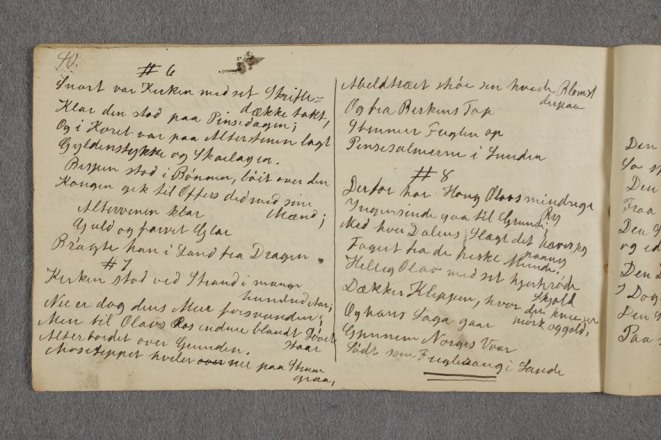 40.
# 6
Snart var Kirken med sit Skifer-
dække takt,
Klar den stod paa Pinsedagen;
Og i Koret var paa Altersteinen lagt
Gyldenstykke og Skarlagen.
Bispen stod i Bønnen, bøit over den
Kongen gik til Offers did med sine
Mænd;
Altervinen klar
Guld og farvet Glar
Bragte han i Land fra Dragen
# 7
Kirken stod ved Strand i mange
hundred Aar;
Nu er dog dens Mur forsvunden;
Men til Olavs Ros endnu blandt
staar
Alterbordet over Grunden.
Mosetæppet hviler nu paa
graa,
Abeldtræet strøe sin hvide Blomst
Og fra Birkens Top
Stemmer Fuglen op
Pinsesalmerne i Lunden
# 8
Derfor har Kong Olavs mindrige
Ry
Ingensinde gaa til Grunde;
Med hver Dalens Slægt det
Faget fra de friske Munde.
Hellig Olav med sit hjerterøde
Skjold
Dækker Kleppen, hvor
mørk og gold,
Og hans Saga gaar
Gjennem Norges Vaar
Sødt som Fuglesang i Lunde
Den
Saa
Den
Fraa
Den
og
Den
Dog
Den
Paa